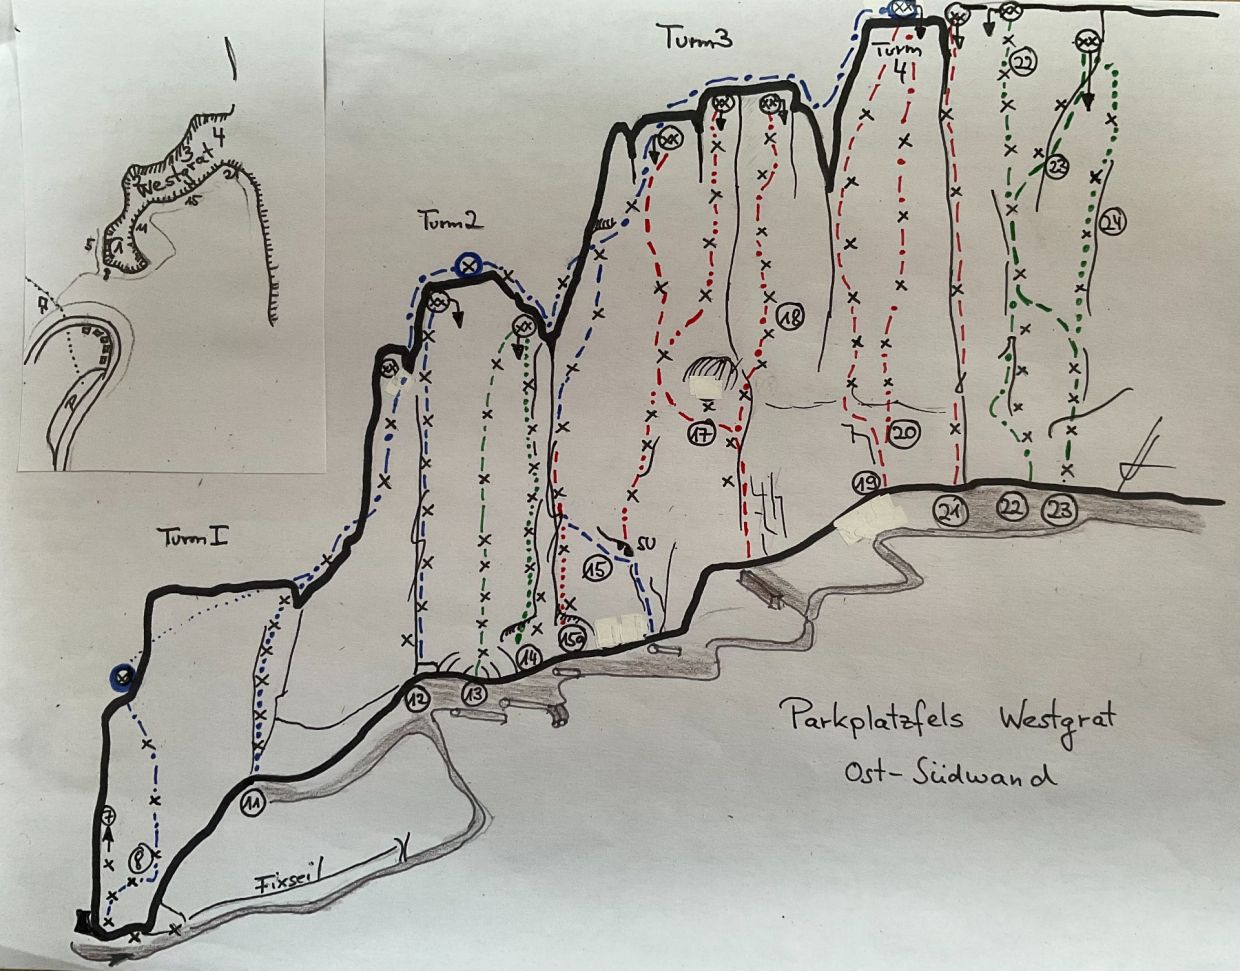 4
3
Westgrat
15
11
1
8
P
P
Turm 3
Turm
4
22
23
24
Turm 2
18
17
20
19
21
22
23
SU
15
15a
14
13
12
Turm I
11
7
8
Fixseil
Parkplatzfels Westgrat
Ost-Südwand